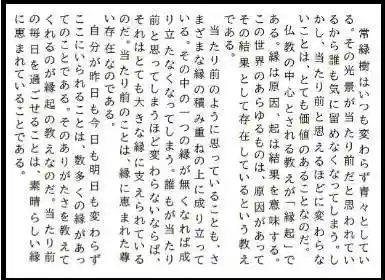 常緑樹はいつも変わらず青々としてい
る。その光景が当たり前だと思われてい
るから誰も気に留めなくなってしまう。し
かし、当たり前と思えるほどに変わらな
いことは、とても価値のあることなのだ。
仏教の中心とされる教えが「縁起」で
ある。縁は原因、起は結果を意味する。
この世界のあらゆるものは、原因があって
その結果として存在しているという教え
である。
当たり前のように思っていることも、さ
まざまな縁の積み重ねの上に成り立って
いる。その中の一つの縁が無くなれば成
り立たなくなってしまう。誰もが当たり
前と思ってしまうほど変わらないならば、
それはとても大きな縁に支えられている
のだ。当たり前のことは、縁に恵まれた尊
い存在なのである。
自分が昨日も今日も明日も変わらず
ここにいられることは、数多くの縁があっ
てのことである。そのありがたさを教えて
くれるのが縁起の教えなのだ。当たり前
の毎日を過ごせることは、素晴らしい縁
に恵まれていることである。